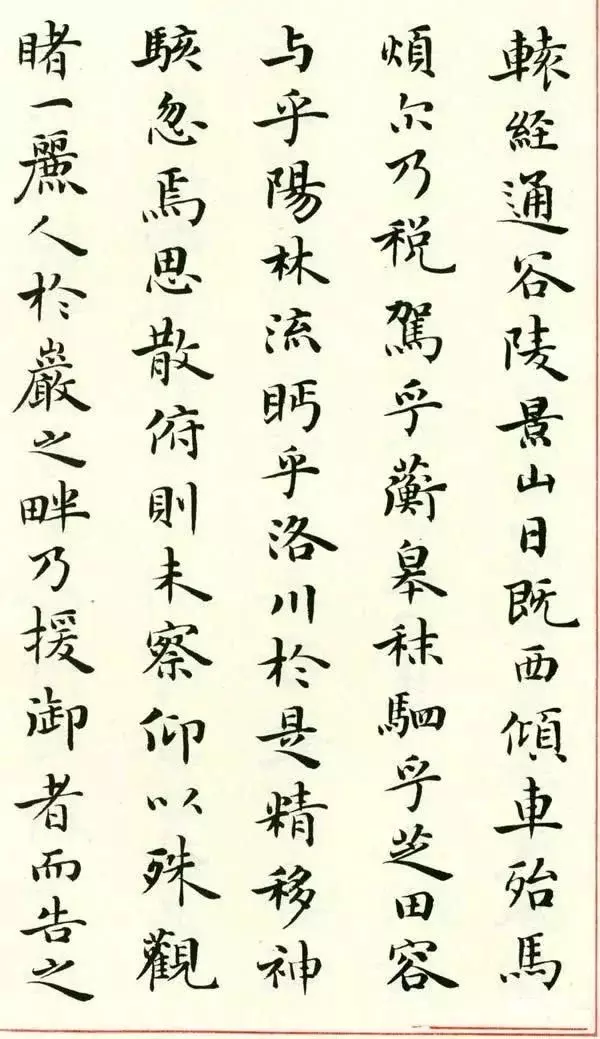 轅経通谷陵景山日既西傾車殆馬
煩尓乃税駕乎蘅皋秣駟乎芝田容
与乎陽林流眄乎洛川於是精移神
駭忽焉思散俯則未察仰以殊觀
睹一麗人於巖之畔乃援御者而告之